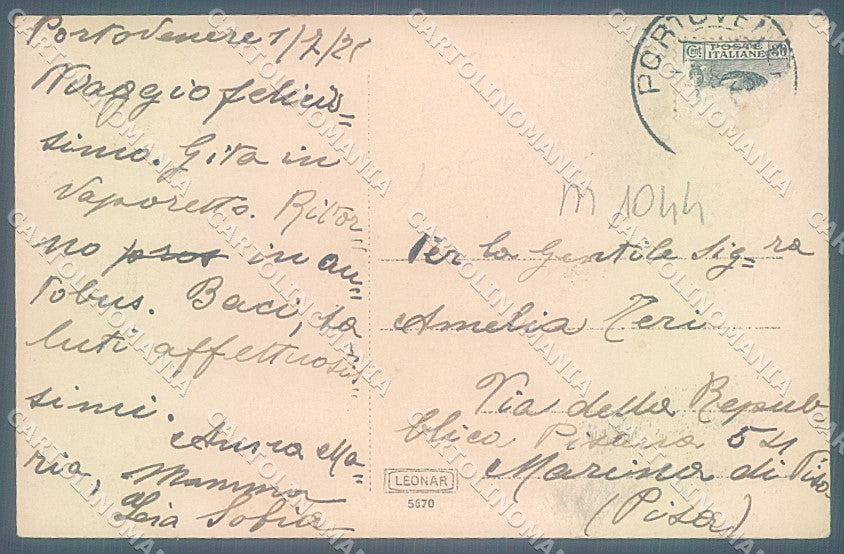 Portovenere 1/7/2
Viaggio felicis=
simo. Gita in
Vaporetto. Ritor=
no pros in au=
tobus. Baci, sa
luti affettuosis=
simi.
Anna Ma=
ria, Mamma
Zia Sofia
PORTOVE
POSTE
ITALIANE
Cent 30
m 1044
Per la Gentile Sig=ra
Amelia Zeri
Via della Repub
blica Pisana 54
Marina di Pisa
(Pisa)
LEONAR
5670
CARTOLINOMANIA